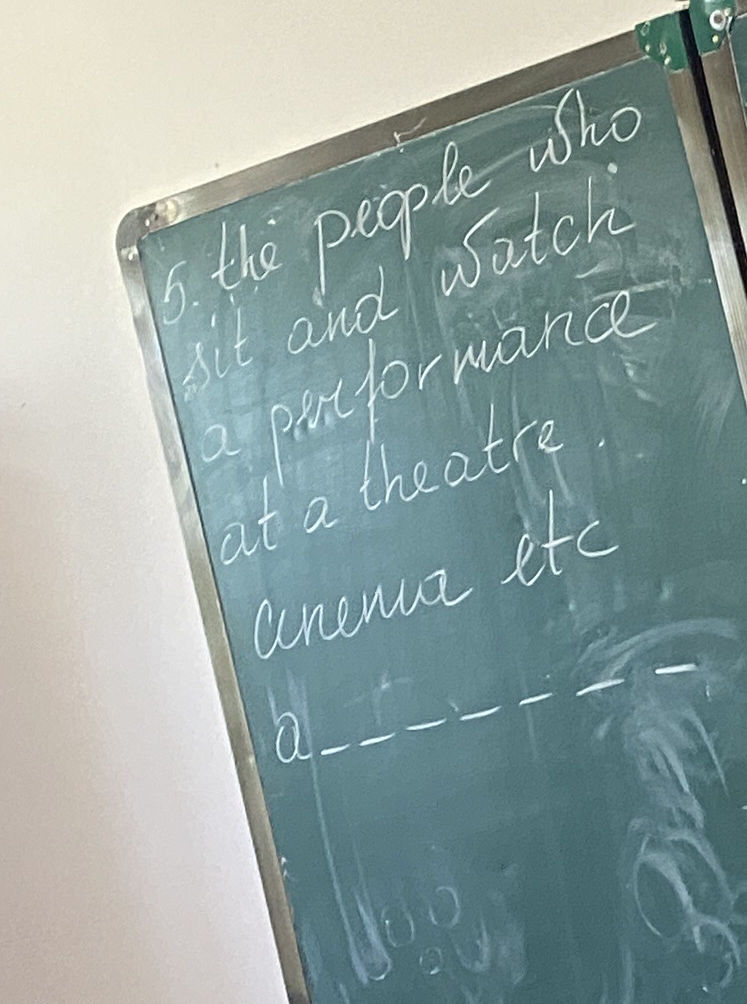 5. the people who
sit and watch
a performance
at a theatre.
cinema etc
a_ _ _ _ _ _ _